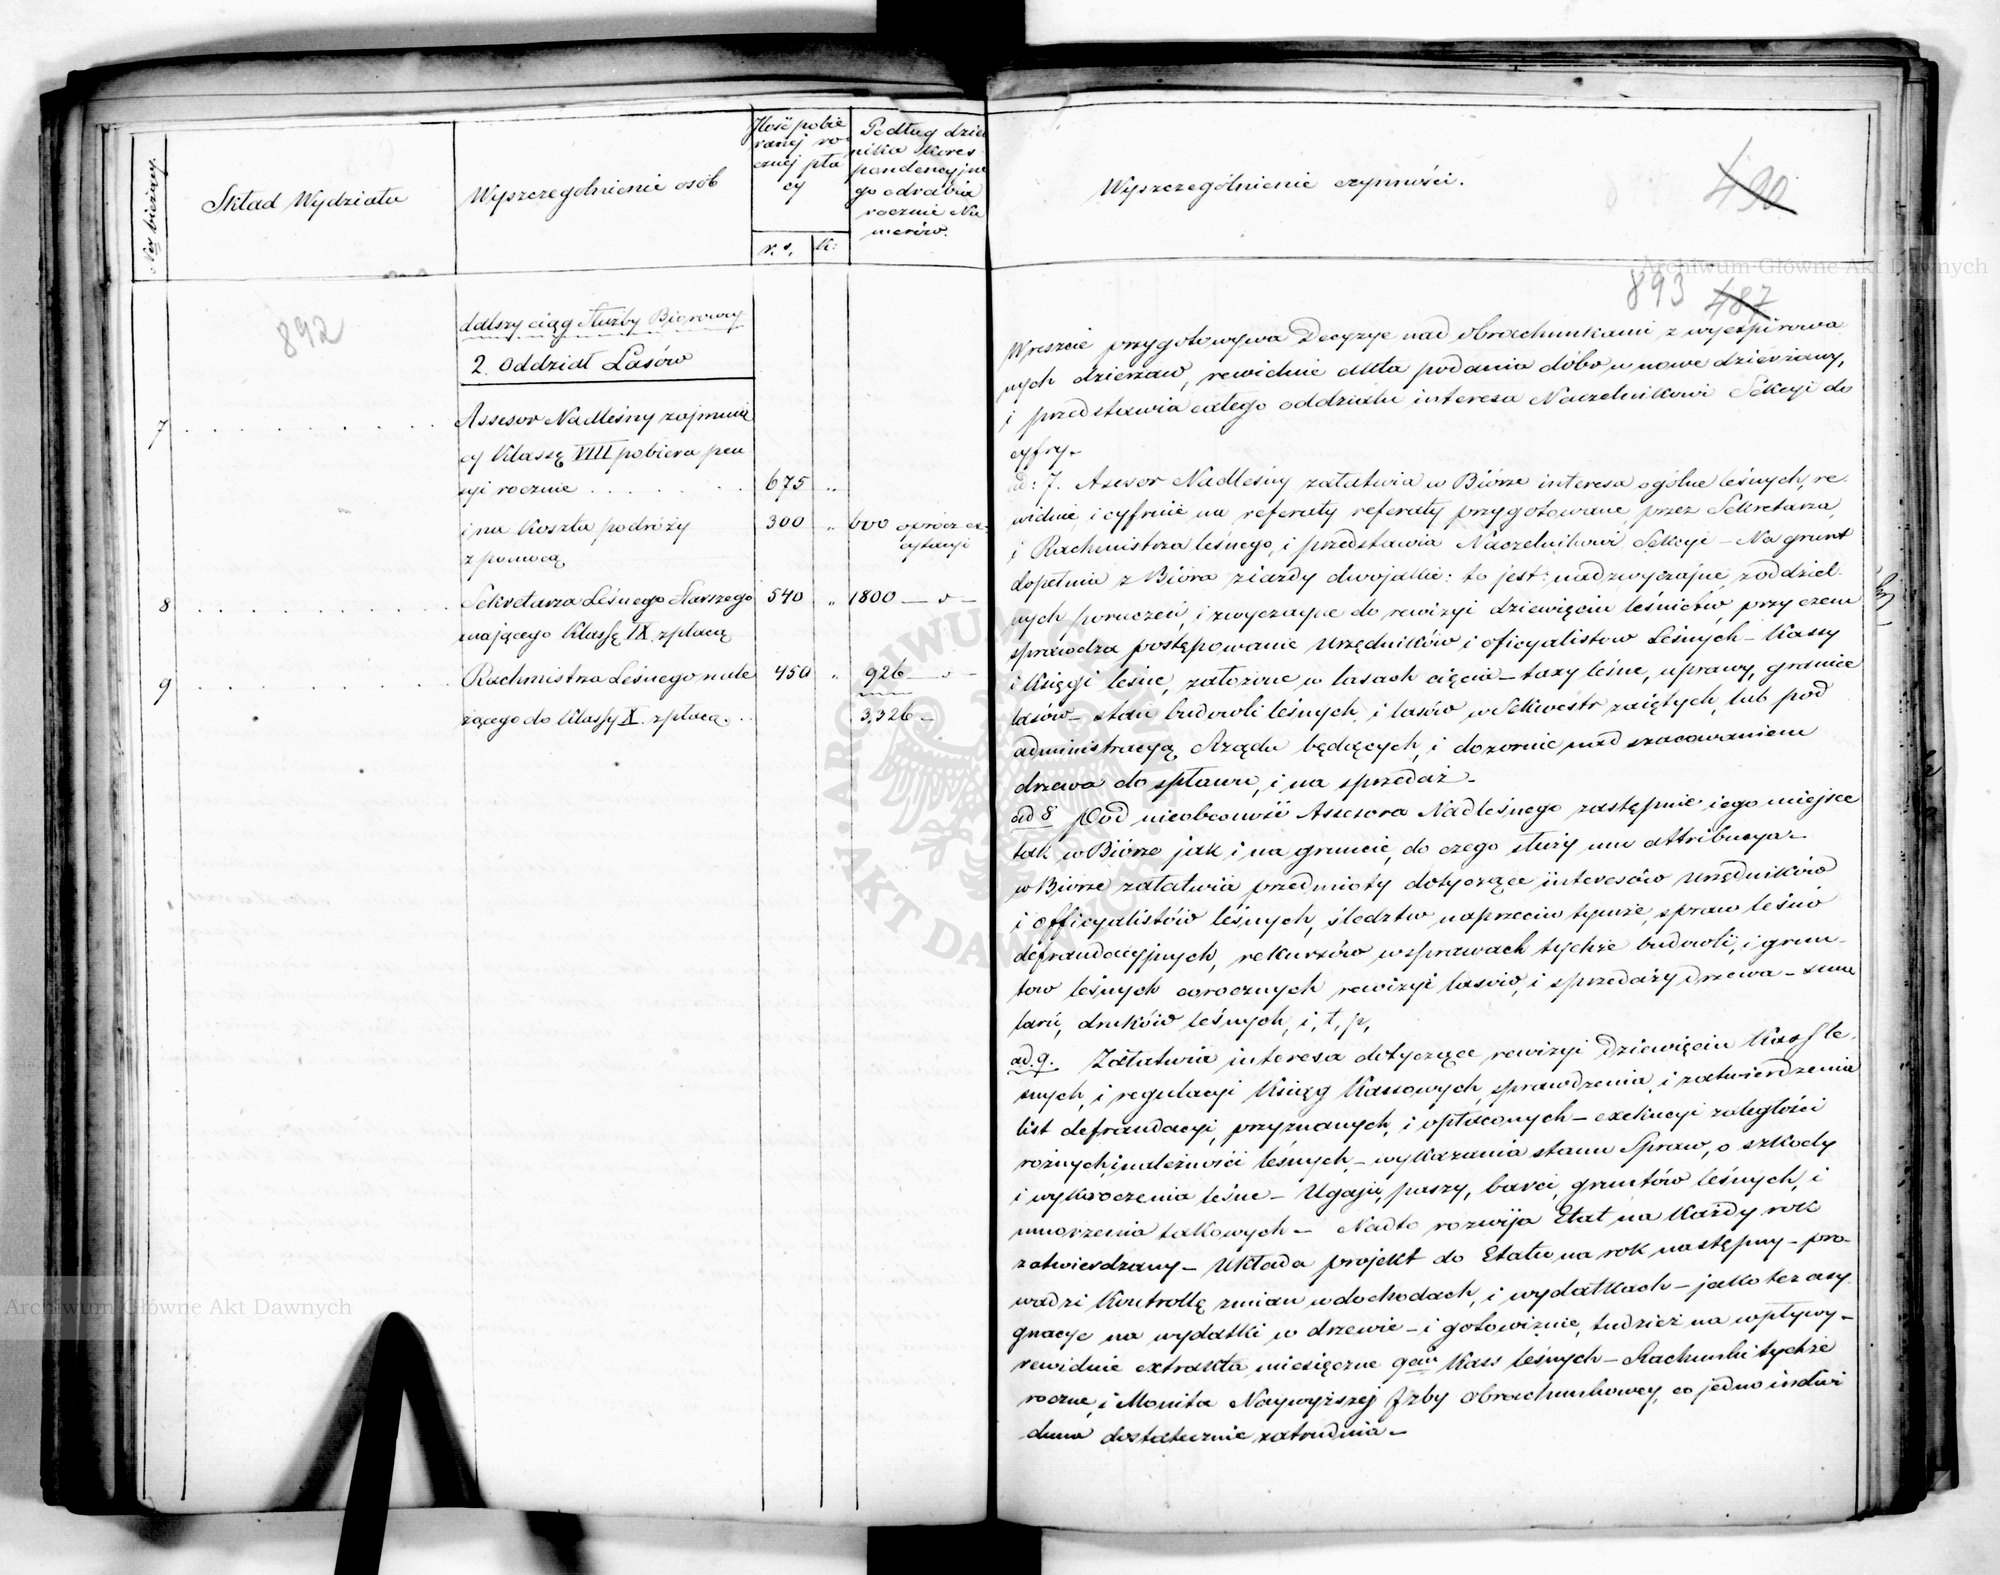 Nro bieżący.
Skład Wydziału
Wyszczególnienie osób
Ilość pobie
ranej ro
cznej pła
cy
r. s. k:
Podług dzie
nnika Kores
pondencyjne
go odrabia
rocznie Nu
merów.
892
dalszy ciąg Służby Biórowey
2. Oddział Lasów
7 Assesor Nadleśny zajmują
cy Klassę VIII pobiera pen
syi rocznie 675 „
i na Koszta podróży 300 „ 600 oprócz ex-
cytacyi
z pomocą
8 Sekretarza Leśnego Starszego 540 „ 1800 — „ —
mającego Klassę IX. z płacą
9 Rachmistrza Leśnego nale 450 „ 926 — „ —
żącego do Klassy X. z płacą. 3,326 —
Wyszczególnienie czynności.
490
893 487
Wreszcie przygotowywa Decyzye nad obrachunkami z wyexpirowa
nych dzierżaw, rewiduie akta podania dóbr w nowe dzierżawy,
i przedstawia całego oddziału interesa Naczelnikowi Sekcyi do
cyfry.
ad: 7. Asesor Nadleśny załatwia w Biórze interesa ogólne leśnych, re-
widuie i cyfruie na referaty referaty przygotowane przez Sekretarza,
i Rachmistrza leśnego, i przedstawia Naczelnikowi Sekcyi – Na grunt
dopełnia z Bióra ziazdy dwojakie: to jest: nadzwyczajne z oddziel-
nych poruczeń, i zwyczayne do rewizyi dziewięciu leśnictw, przy czem
sprawdza postępowanie Urzędników i oficyalistow Leśnych – Kassy
i Księgi leśne, założone w lasach cięcia – taxy leśne, uprawy, granice
lasów – stan budowli leśnych, i lasów w Sekwestr zaiętych, lub pod
administracyą Rządu będących, i dozoruie nad szacowaniem
drzewa do spławu, i na sprzedaż –
ad 8 Pod nieobecność Assesora Nadleśnego zastępuie iego miejsce
tak w Biórze jak i na gruncie, do czego służy mu attribucya –
w Biórze załatwia przedmioty dotyczące interesów Urzędników
i officyalistów leśnych, śledztw naprzeciw tymże, spraw leśno
defraudacyjnych, rekursów w sprawach tychże budowli, i grun-
tow leśnych corocznych rewizyi lasów, i sprzedaży drzewa –
druków leśnych, i, t, p,
ad. 9. Załatwia interesa dotyczące rewizyi Dziewięciu Kass le-
snych, i regulacyi Ksiąg Kassowych, sprawdzenia, i zatwierdzenia
list defraudacyi, przyznanych, i opłaconych – exekucyi zaległości
rożnych należności leśnych – wykazania stanu Spraw, o szkody
i wykroczenia leśne – Ugaju, paszy, barci, gruntów leśnych, i
umorzenia takowych – Nadto rozwija Etat na Każdy rok
zatwierdzany – Układa projekt do Etatu na rok następny – pro-
wadzi Kontrollę zmian w dochodach, i wydatkach – jako też asy-
gnacye na wydatki w drzewie – i gotowiznie, tudzież na wpływy –
rewiduie extrakta miesięczne 9ciu Kass leśnych – Rachunki tychże
roczne, i Monita Naywyższej Izby Obrachunkowey, co jedno indivi
duum dostatecznie zatrudnia –
Archiwum Główne Akt Dawnych
Archiwum Główne Akt Dawnych
ARCHIWUM GŁÓWNE AKT DAWNYCH